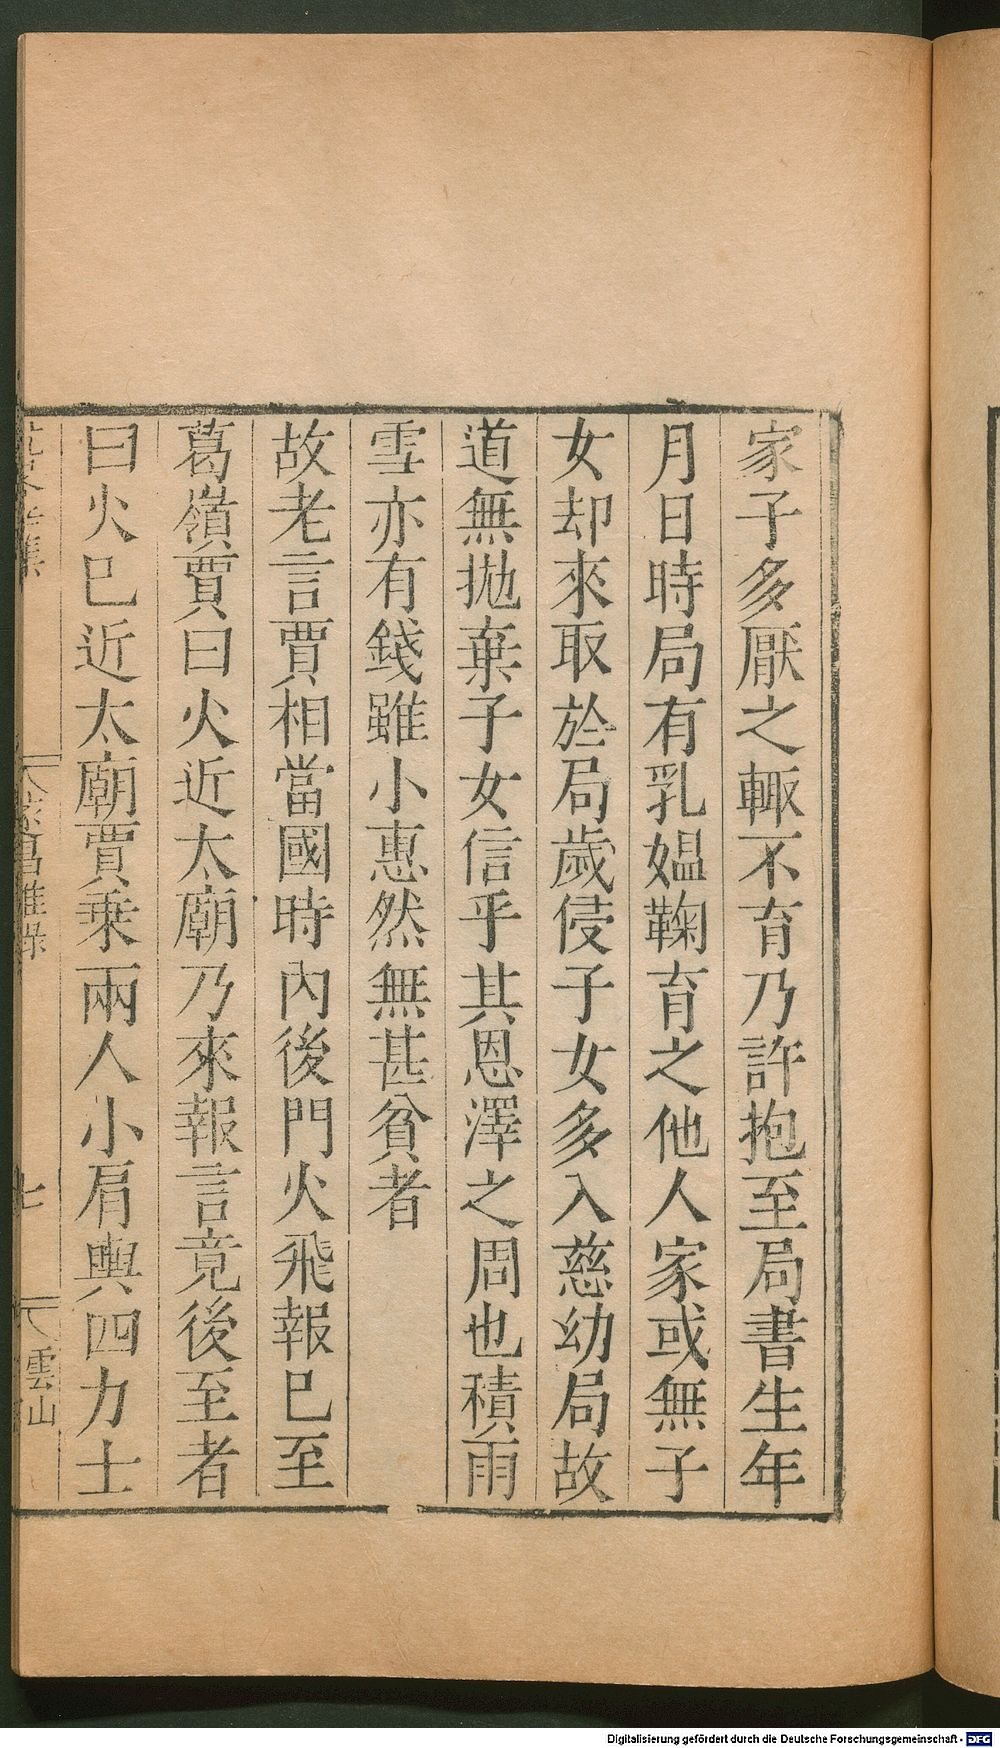 家子多厭之輙不育乃許抱至局書生年
月日時局有乳媼鞠育之他人家或無子
女却來取於局歲侵子女多入慈幼局故
道無拋棄子女信乎其恩澤之周也積雨
雪亦有錢雖小惠然無甚貧者
故老言賈相當國時內後門火飛報已至
葛嶺賈曰火近太廟乃來報言竟後至者
曰火已近太廟賈乗兩人小肩輿四力士
七
雲山
Digitalisierung gefördert durch die Deutsche Forschungsgemeinschaft - DFG